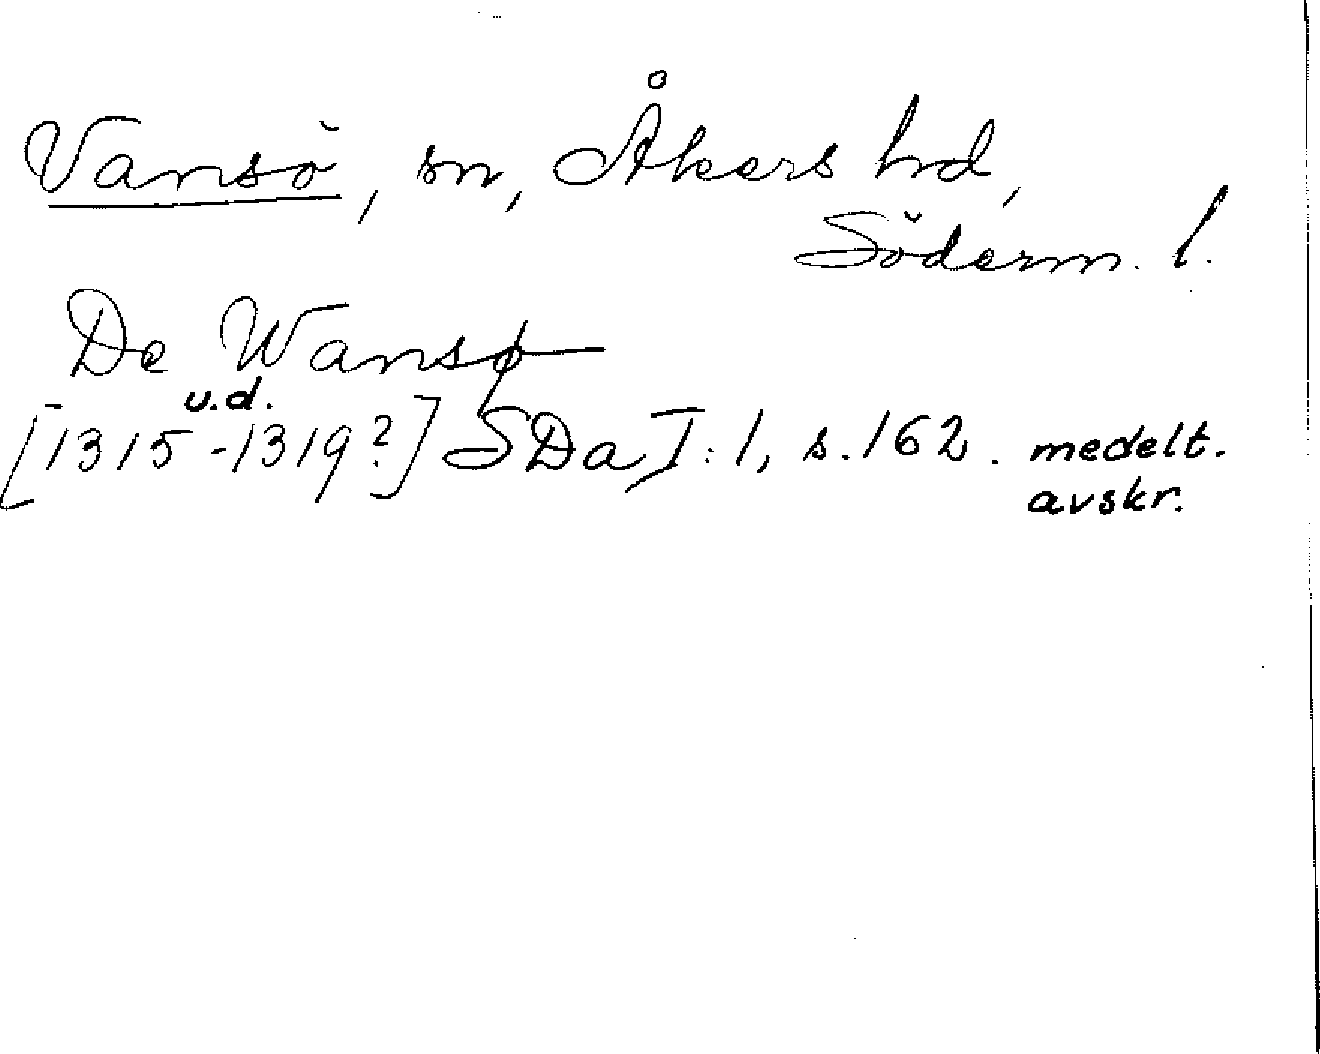 Vansö, sn, Åkers hd,
Söderm. l.
De Wansø
u.d.
[1315-1319?] SDa I:1, s. 162. medelt.
avskr.